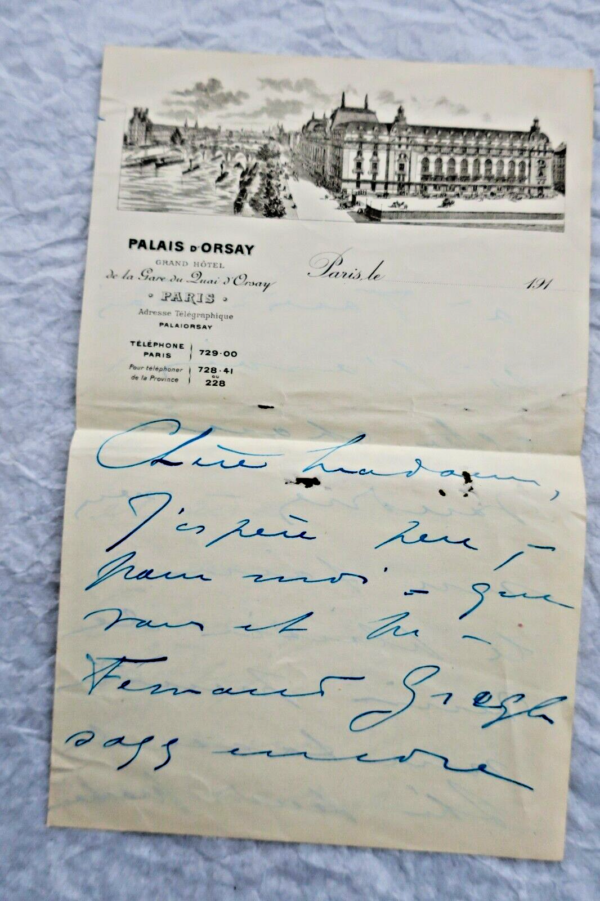 PALAIS D'ORSAY
GRAND HÔTEL
de la Gare du Quai d'Orsay
· PARIS ·
Adresse Télégraphique
PALAIORSAY
TÉLÉPHONE PARIS 729·00
Pour téléphoner de la Province 728·41 ou 228
Paris, le 191
Chère Madame,
J'espère peu, –
pour moi – que
vous et
Fernand Gregh
soyez encore